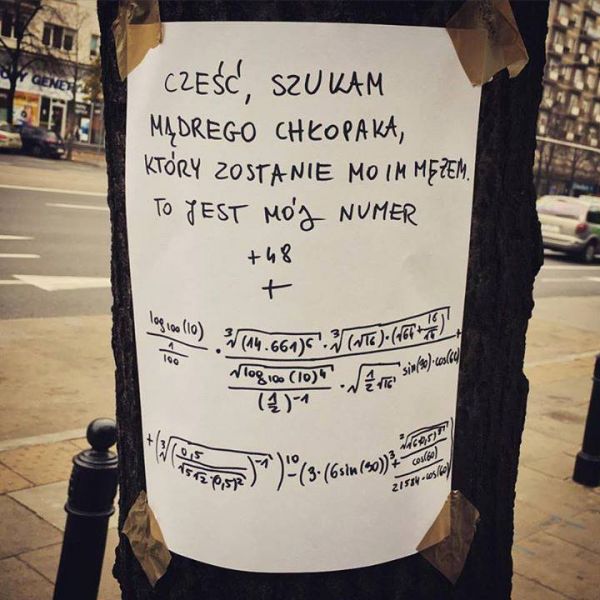 CZEŚĆ, SZUKAM
MĄDREGO CHŁOPAKA,
KTÓRY ZOSTANIE MOIM MĘŻEM.
TO JEST MÓJ NUMER
+48
+
log100(10) / (1/100) · ∛(14.661)⁶ · ∛(√16)·(√64+16/√4) / (√log100(10)⁴ / (1/2)⁻¹) · √(1/2 √16) sin(90)·cos(60) +
+ (∛(0,5 / √512·(0,5)²)⁻¹)¹⁰ - (3·(6sin(30))³ +
cos(60)
21584·cos(60)